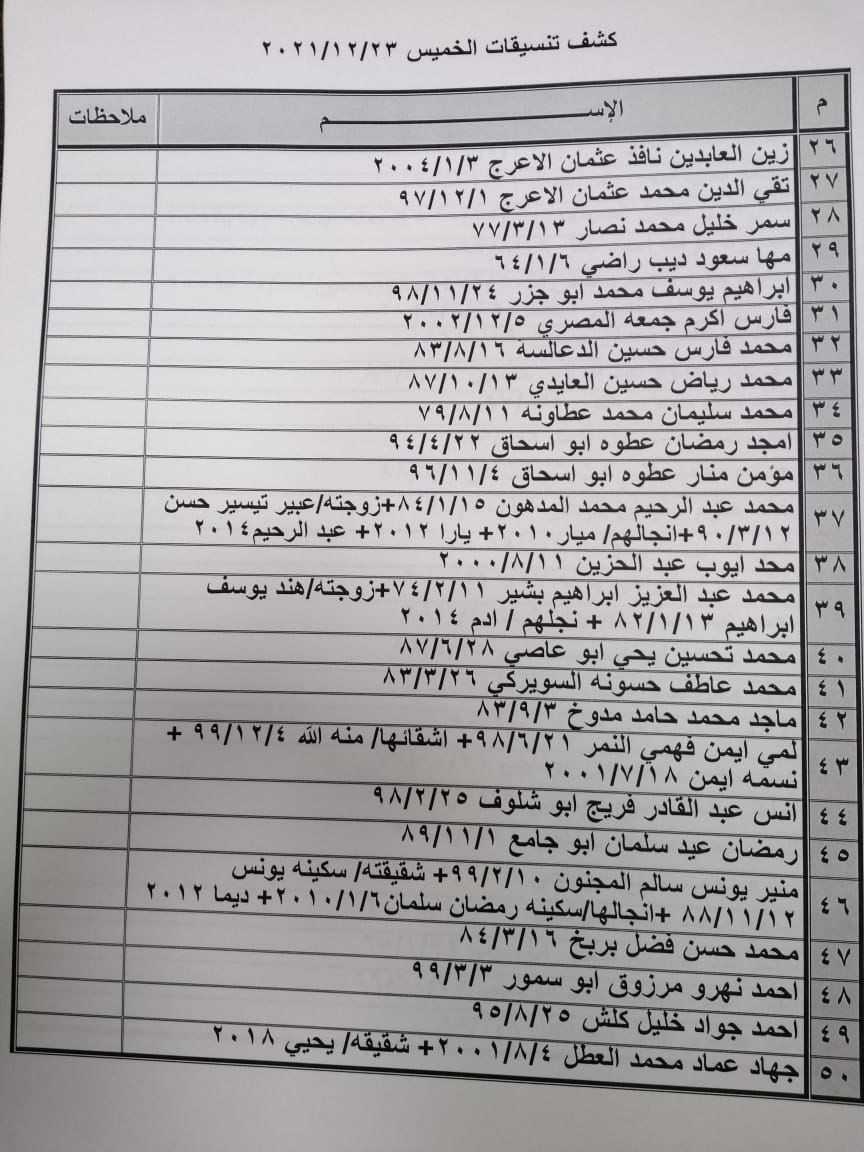 كشف تنسيقات الخميس ٢٠٢١/١٢/٢٣
م الإســـــــــــــــــــــــــــــــم ملاحظات
٢٦ زين العابدين نافذ عثمان الاعرج ٢٠٠٤/١/٣
٢٧ تقي الدين محمد عثمان الاعرج ٩٧/١٢/١
٢٨ سمر خليل محمد نصار ٧٧/٣/١٣
٢٩ مها سعود ديب راضي ٦٤/١/٦
٣٠ ابراهيم يوسف محمد ابو جزر ٩٨/١١/٢٤
٣١ فارس اكرم جمعه المصري ٢٠٠٢/١٢/٥
٣٢ محمد فارس حسين الدعالسة ٨٣/٨/١٦
٣٣ محمد رياض حسين العايدي ٨٧/١٠/١٣
٣٤ محمد سليمان محمد عطاونه ٧٩/٨/١١
٣٥ امجد رمضان عطوه ابو اسحاق ٩٤/٤/٢٢
٣٦ مؤمن منار عطوه ابو اسحاق ٩٦/١١/٤
٣٧ محمد عبد الرحيم محمد المدهون ٨٤/١/١٥+زوجته/عبير تيسير حسن
٩٠/٣/١٢+انجالهم/ ميار٢٠١٠+ يارا ٢٠١٢+ عبد الرحيم٢٠١٤
٣٨ محد ايوب عبد الحزين ٢٠٠٠/٨/١١
٣٩ محمد عبد العزيز ابراهيم بشير ٧٤/٢/١١+زوجته/هند يوسف
ابراهيم ٨٢/١/١٣ + نجلهم / ادم ٢٠١٤
٤٠ محمد تحسين يحي ابو عاصي ٨٧/٦/٢٨
٤١ محمد عاطف حسونه السويركي ٨٣/٣/٢٦
٤٢ ماجد محمد حامد مدوخ ٨٣/٩/٣
٤٣ لمي ايمن فهمي النمر ٩٨/٦/٢١+ اشقائها/ منه الله ٩٩/١٢/٤ +
نسمه ايمن ٢٠٠١/٧/١٨
٤٤ انس عبد القادر فريج ابو شلوف ٩٨/٢/٢٥
٤٥ رمضان عيد سلمان ابو جامع ٨٩/١١/١
٤٦ منير يونس سالم المجنون ٩٩/٢/١٠+ شقيقته/ سكينه يونس
٨٨/١١/١٢ +انجالها/سكينه رمضان سلمان٢٠١٠/١/٦+ ديما ٢٠١٢
٤٧ محمد حسن فضل بربخ ٨٤/٣/١٦
٤٨ احمد نهرو مرزوق ابو سمور ٩٩/٣/٣
٤٩ احمد جواد خليل كلش ٩٥/٨/٢٥
٥٠ جهاد عماد محمد العطل ٢٠٠١/٨/٤+ شقيقه/ يحيي ٢٠١٨